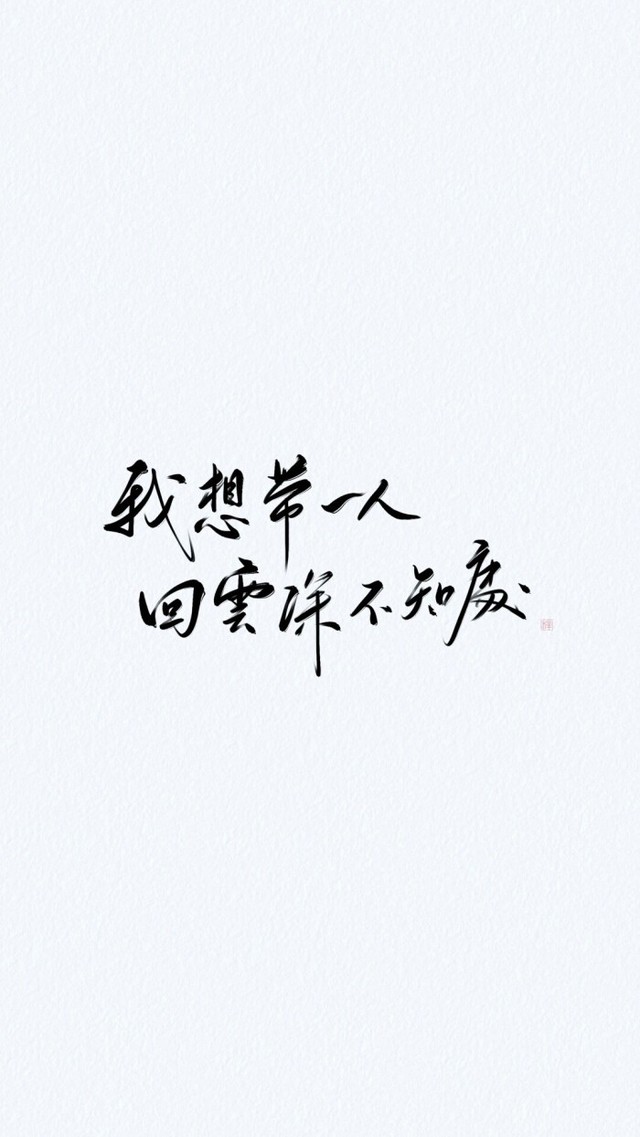 我想带一人
回雲深不知處